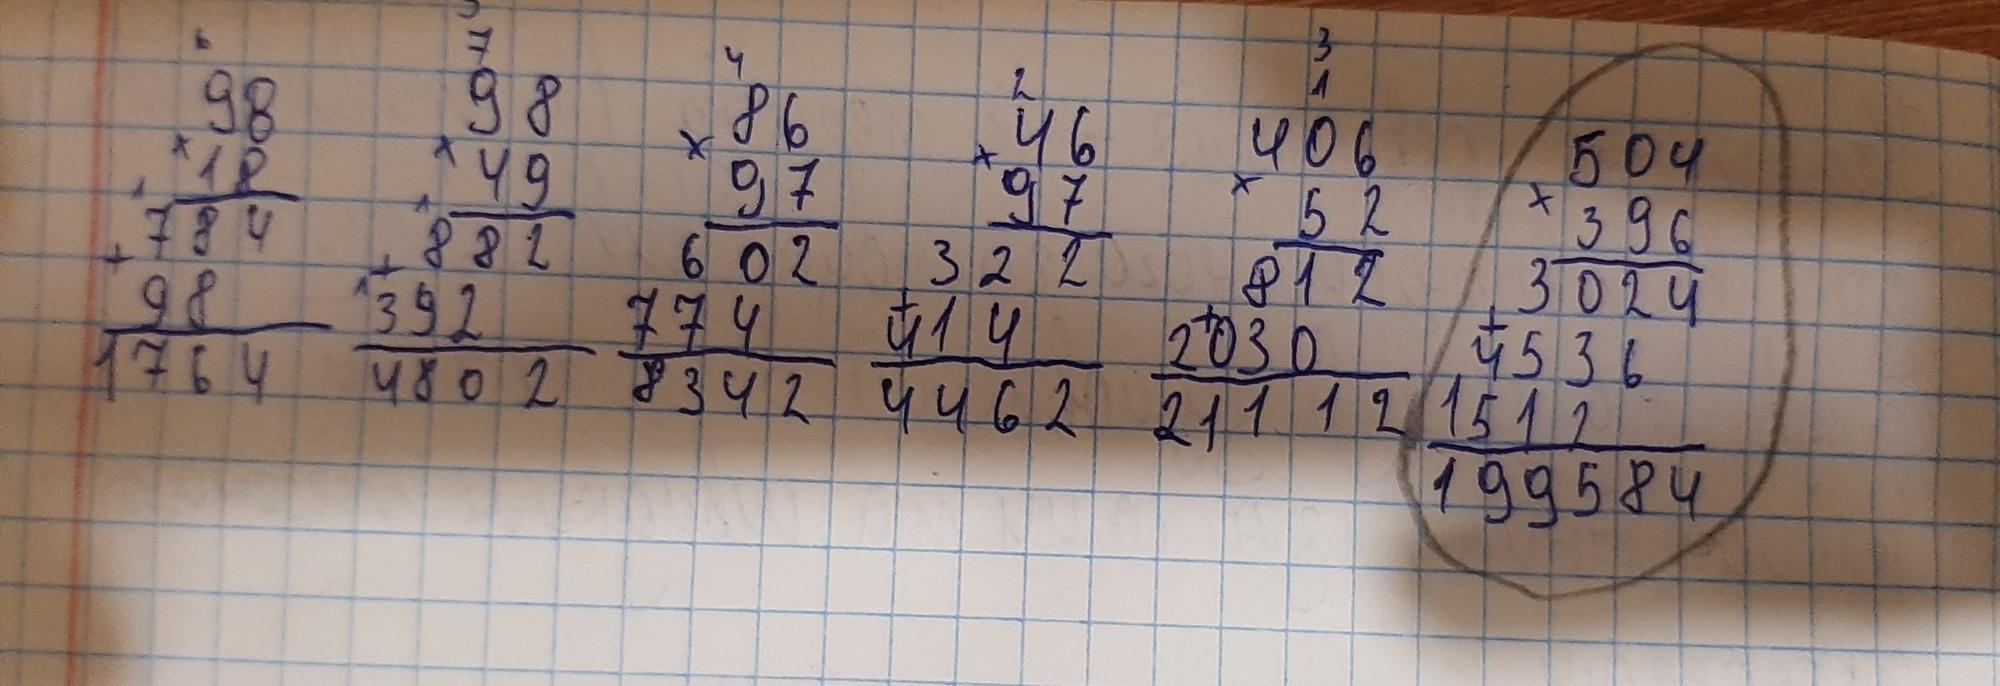 98
× 18
784
+ 98
1764
7
98
× 49
882
+ 392
4802
4
86
× 97
602
774
8342
2
46
× 97
322
+ 414
4462
3
1
406
× 52
812
+ 2030
21112
504
× 396
3024
+ 4536
1512
199584